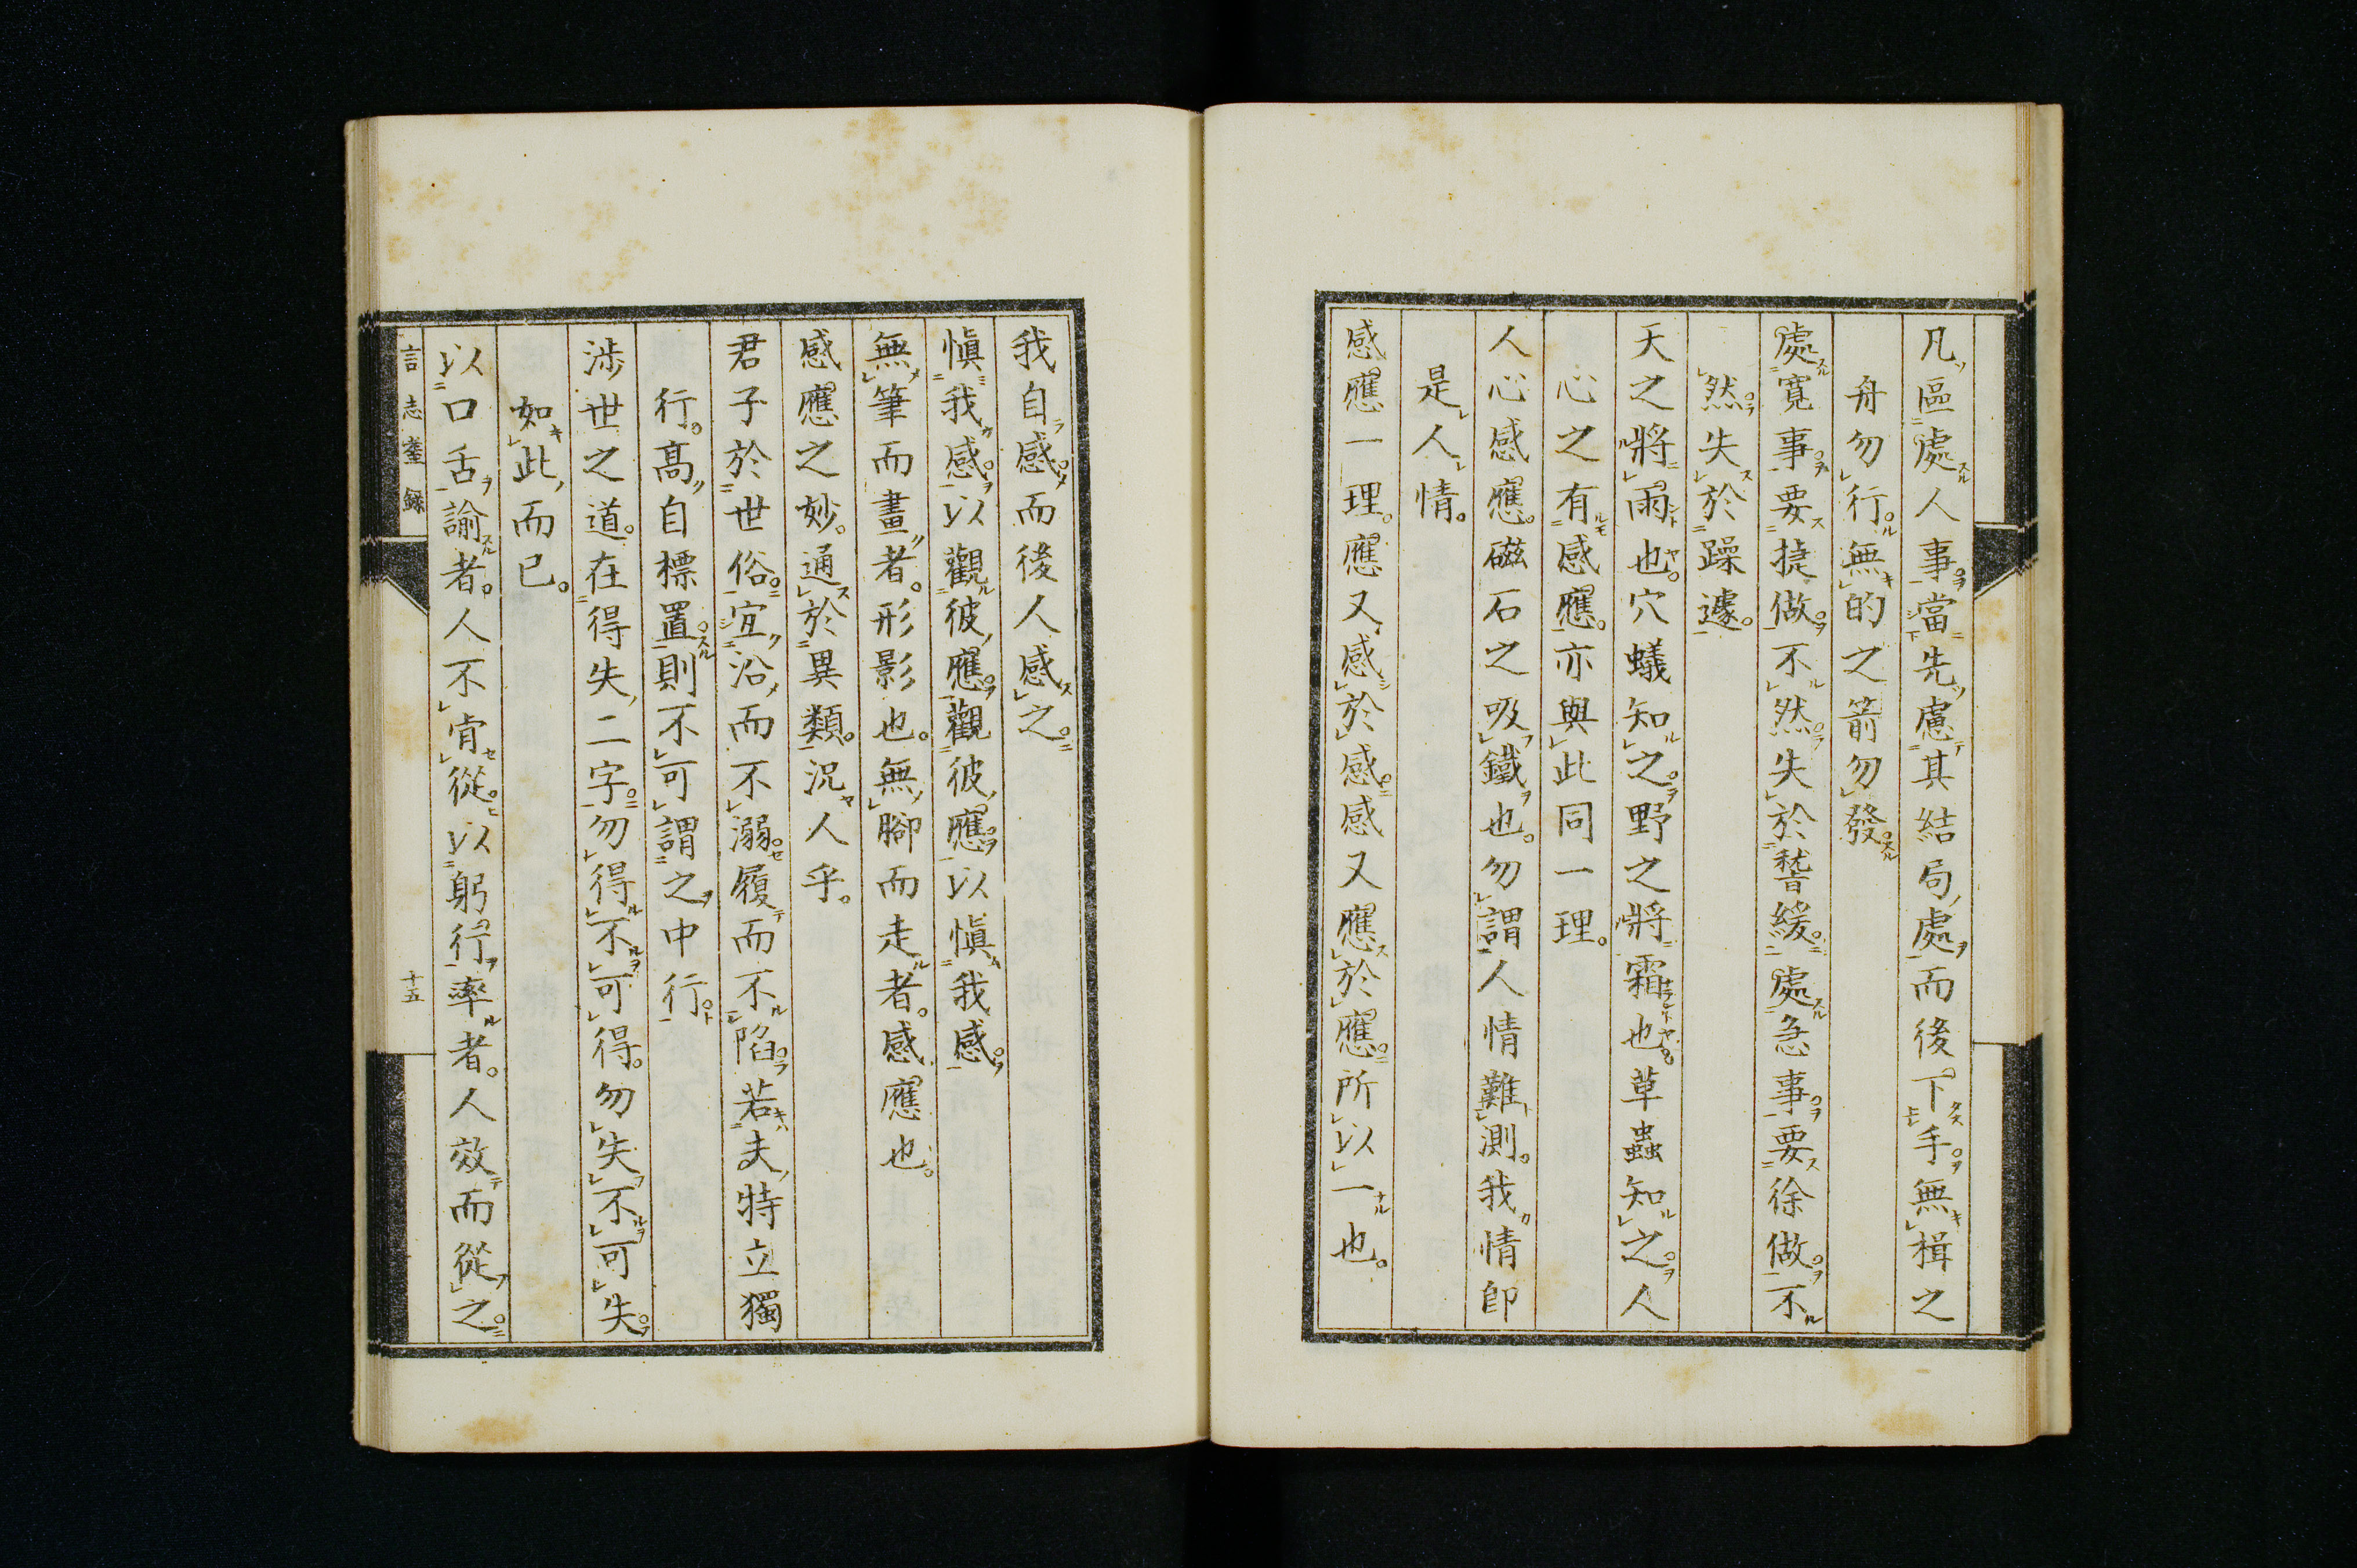 凡區處人事。當先慮其結局處。而後下手。無楫之
舟勿行。無的之箭勿發。
處寬事。要捷做。不然。失於稽緩。處急事。要徐做。不
然。失於躁遽。
天之將雨也。穴蟻知之。野之將霜也。草蟲知之。人
心之有感應。亦與此同一理。
人心感應。磁石之吸鐵也。勿謂人情難測。我情卽
是人情。
感應一理。應又感於感。感又應於應。所以一也。
我自感。而後人感之。
愼我感。以觀彼應。觀彼應。以愼我感。
無筆而畫者。形影也。無腳而走者。感應也。
感應之妙。通於異類。況人乎。
君子於世俗。宜沿而不溺。履而不陷。若夫特立獨
行。高自標置。則不可謂之中行。
涉世之道。在得失二字。勿得不可得。勿失不可失。
如此而已。
以口舌諭者。人不肯從。以躬行率者。人效而從之。
言志耋錄
十五